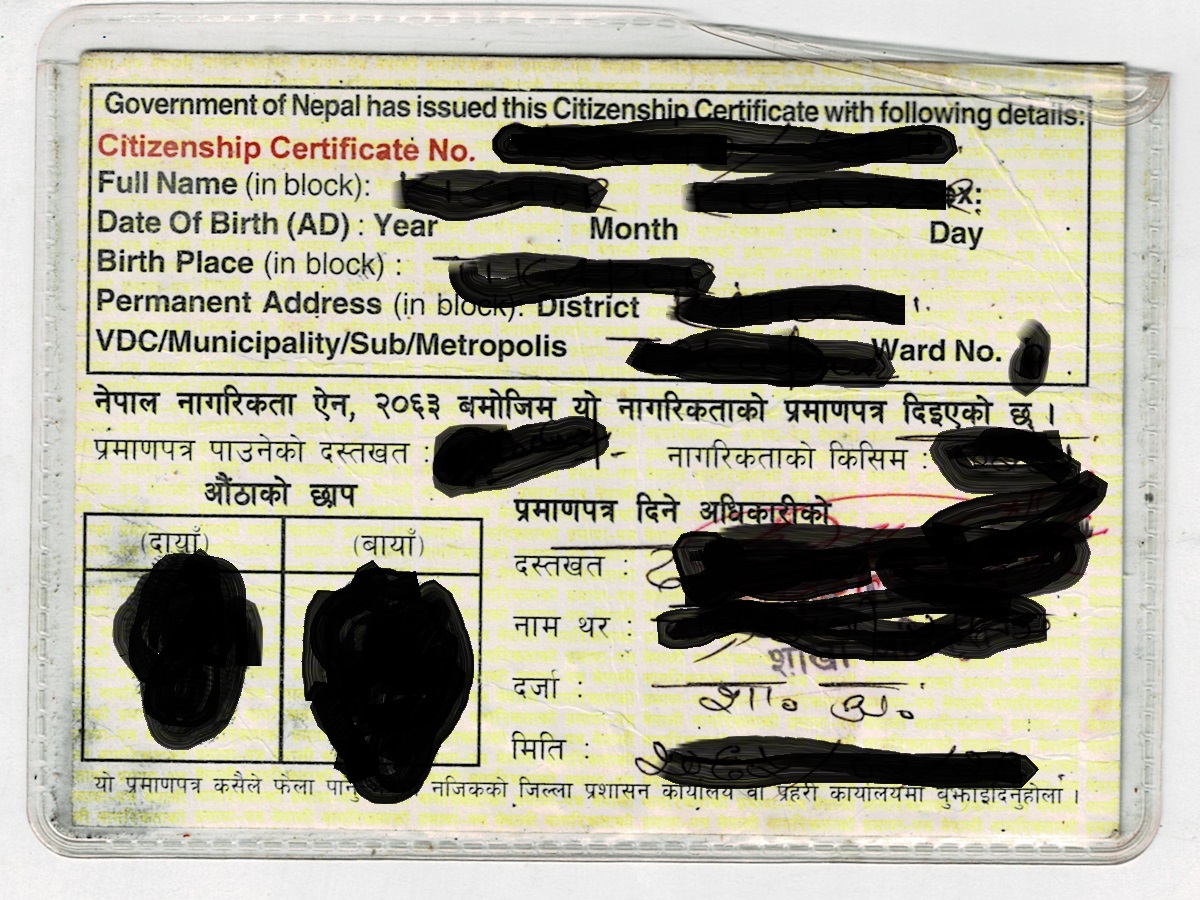 Government of Nepal has issued this Citizenship Certificate with following details:
Citizenship Certificate No.
Full Name (in block):
Date Of Birth (AD) : Year Month Day
Birth Place (in block) :
Permanent Address (in block): District
VDC/Municipality/Sub/Metropolis Ward No.
नेपाल नागरिकता ऐन, २०६३ बमोजिम यो नागरिकताको प्रमाणपत्र दिइएको छ ।
प्रमाणपत्र पाउनेको दस्तखत : नागरिकताको किसिम :
औंठाको छाप
(दायाँ) (बायाँ)
प्रमाणपत्र दिने अधिकारीको
दस्तखत :
नाम थर :
शाखा
दर्जा : शा. अ.
मिति :
यो प्रमाणपत्र कसैले फेला नजिकको जिल्ला प्रशासन कार्यालय वा प्रहरी कार्यालयमा बुझाइदिनुहोला ।